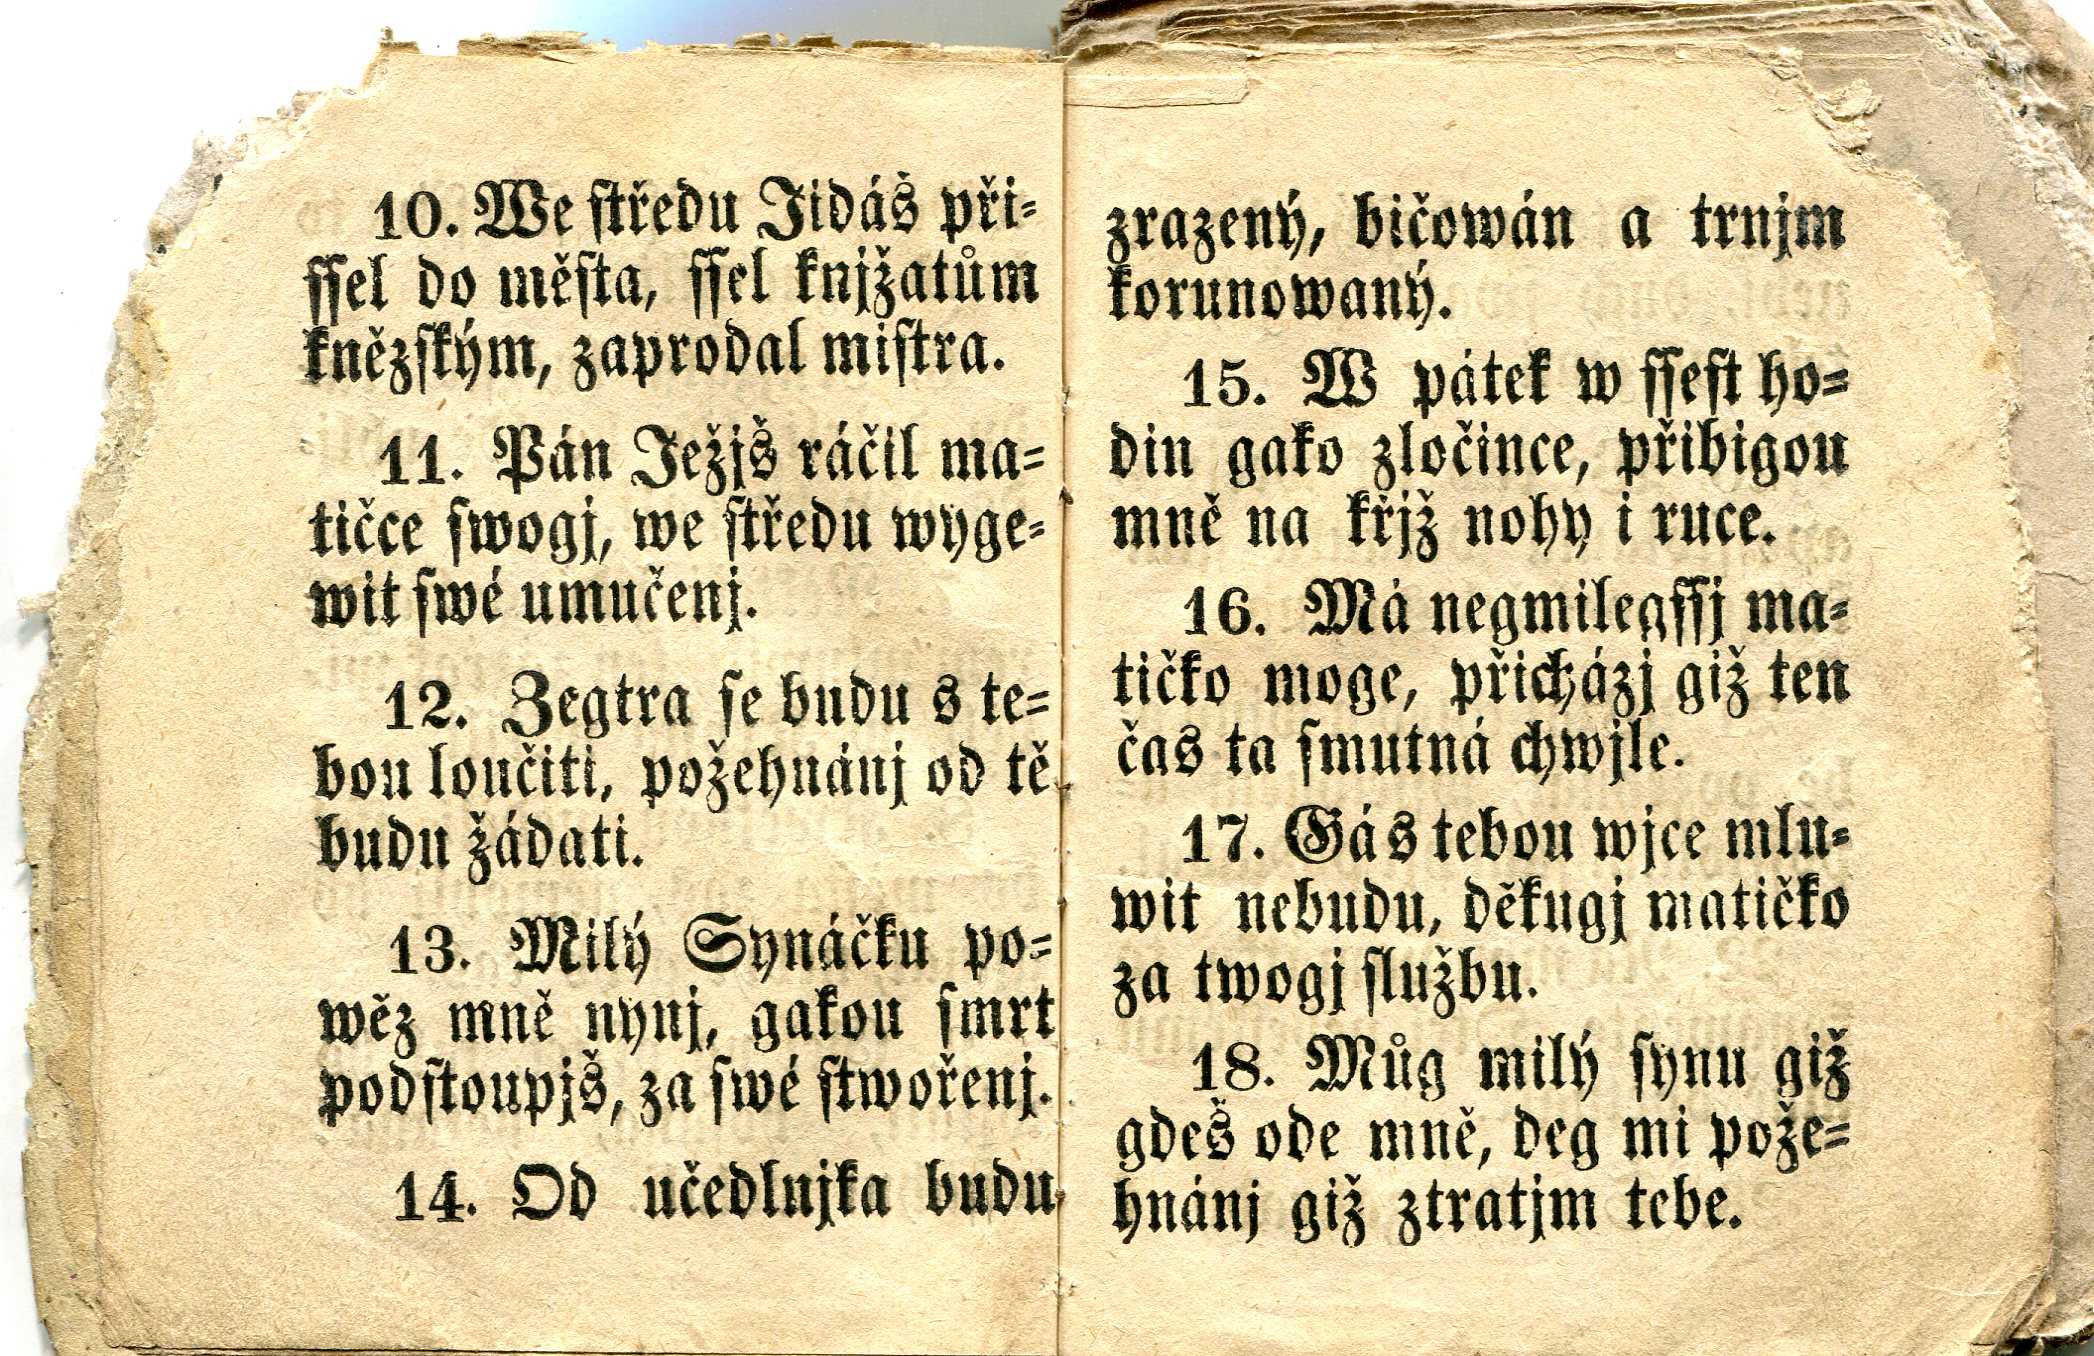 10. We středu Jidáš při=
ssel do města, ssel knjžatům
kněžským, zaprodal mistra.
11. Pán Ježjš ráčil ma=
tičce swogj, we středu wyge=
wit swé umučenj.
12. Zegtra se budu s te=
bou loučiti, požehnánj od tě
budu žádati.
13. Milý Synáčku po=
wěz mně nynj, gakou smrt
podstoupjš, za swé stwořenj.
14. Od učedlnjka budu
zrazený, bičowán a trnjm
korunowaný.
15. W pátek w ssest ho=
din gako zločince, přibigou
mně na křjž nohy i ruce.
16. Má negmilegssj ma=
tičko moge, přicházj giž ten
čas ta smutná chwjle.
17. Gá s tebou wjce mlu=
wit nebudu, děkugj matičko
za twogj službu.
18. Můg milý synu giž
gdeš ode mně, deg mi pože=
hnánj giž ztratjm tebe.